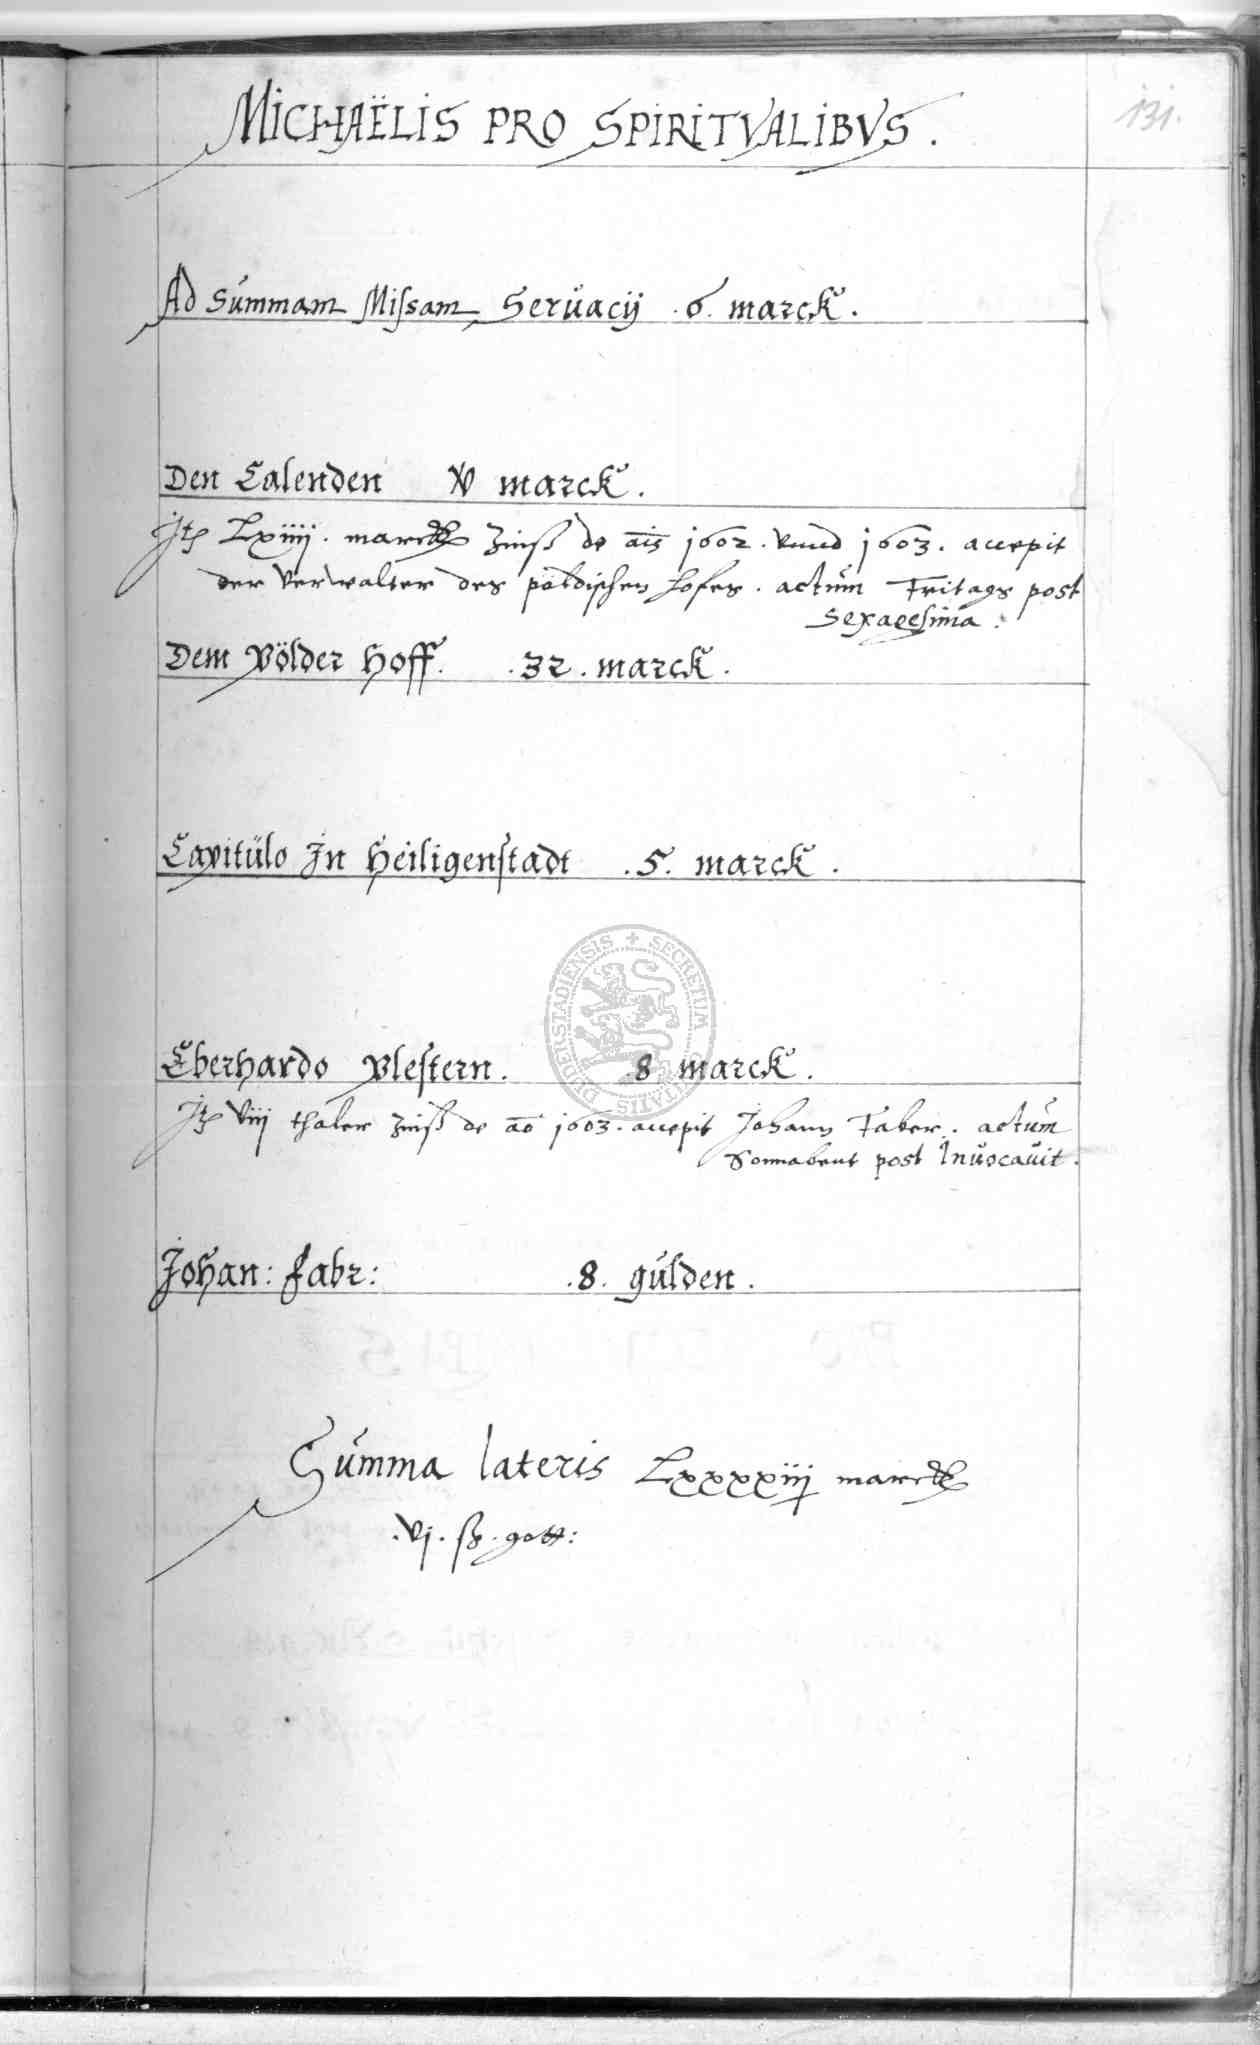 131.
MICHAËLIS PRO SPIRITVALIBVS.
Ad Summam Missam Servacij .6. marck.
Den Calenden V marck.
Lxiiij. marck Zinß de aīs 1602. vnnd 1603. accepit
der verwalter des pöldischen hofes. actum Fritags post
Sexagesima.
Dem Pölder Hoff. .32. marck.
Capitulo In Heiligenstadt .5. marck.
Eberhardo Plestern. .8. marck.
viij thaler Zinß de aō 1603. accepit Johann Faber. actum
Sonnabent post Invocavit.
Johan: Fabr: .8. gulden.
Summa lateris Lxxxxiij marck
.vj. gott:
SECRETUM DUDERSTADIENSIS